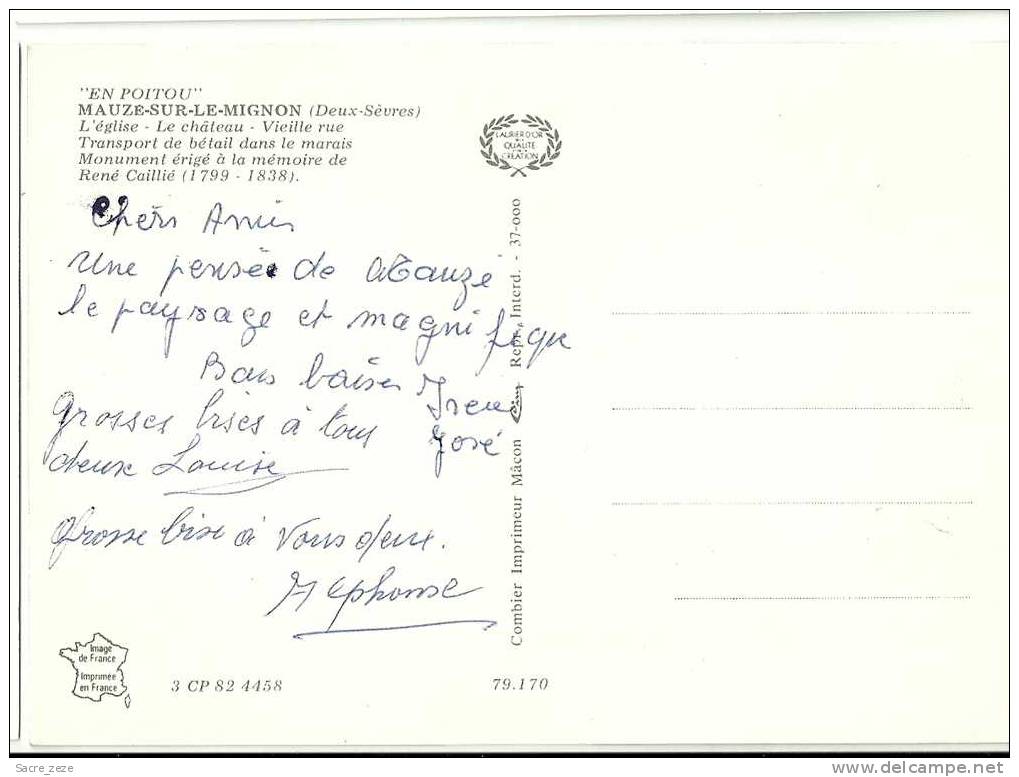 "EN POITOU"
MAUZE-SUR-LE-MIGNON (Deux-Sèvres)
L'église - Le château - Vieille rue
Transport de bétail dans le marais
Monument érigé à la mémoire de
René Caillié (1799 - 1838).
LAURIER D'OR
DE LA
QUALITÉ
CREATION
Chers Amis
Une pensée de Mauzé
le paysage et magnifique
Bons baisers Irene
José
Grosses bises à tous
deux Louise
Grosse bise à vous deux.
Alphonse
Combier Imprimeur Mâcon Cim Repr. Interd. - 37-000
Image
de France
Imprimée
en France
3 CP 82 4458
79.170
Sacre_zeze
www.delcampe.net